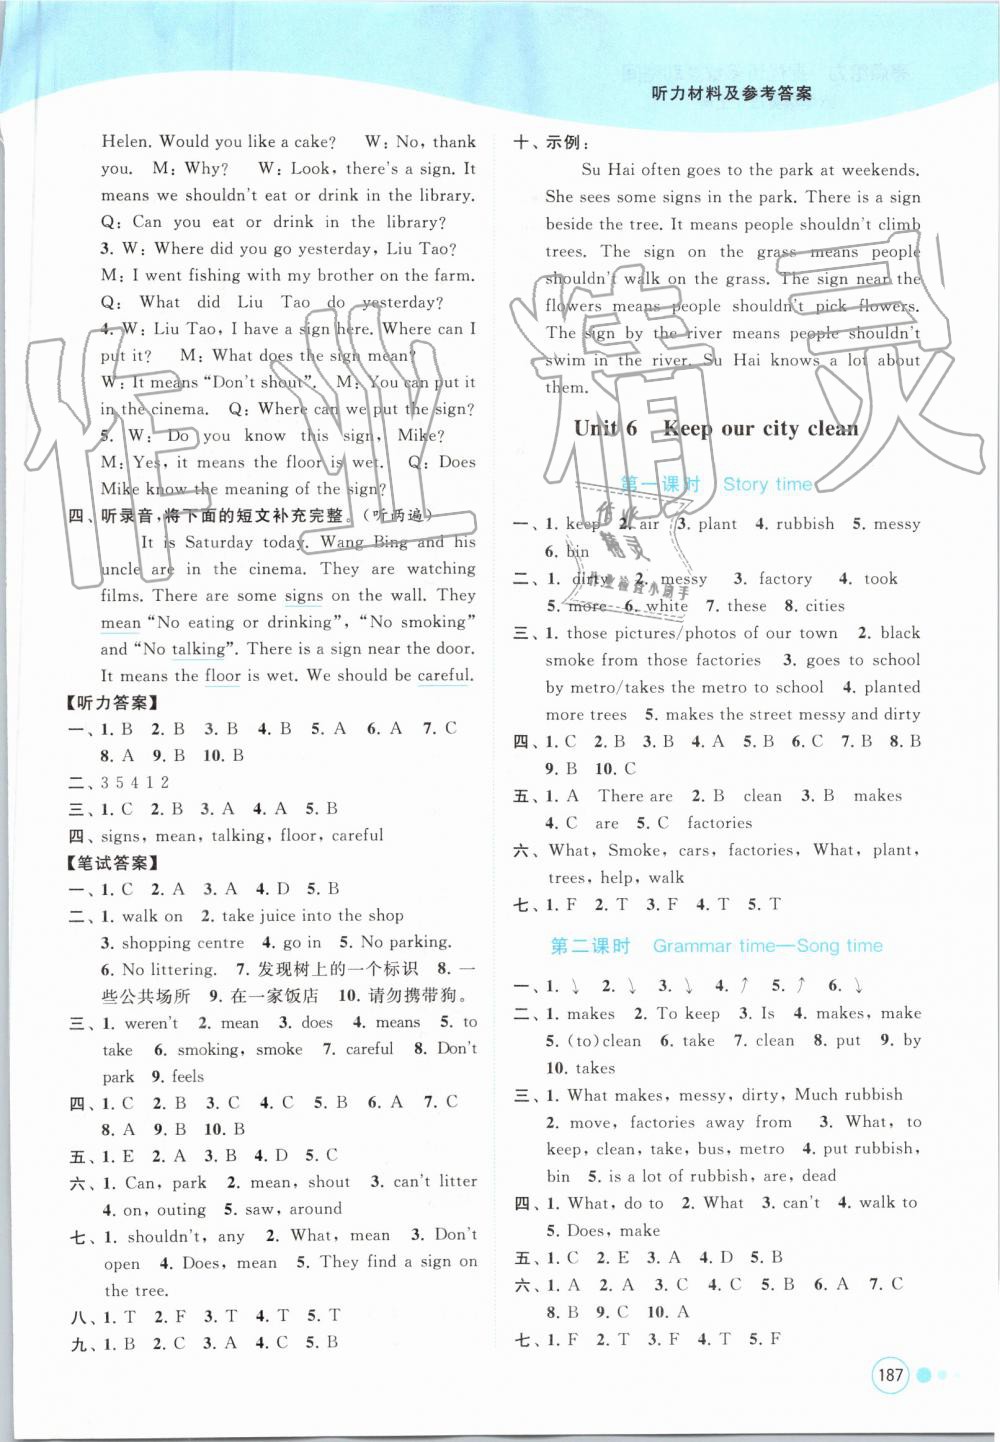 听力材料及参考答案
Helen. Would you like a cake? W: No, thank
you. M: Why? W: Look, there's a sign. It
means we shouldn't eat or drink in the library.
Q: Can you eat or drink in the library?
3. W: Where did you go yesterday, Liu Tao?
M: I went fishing with my brother on the farm.
Q: What did Liu Tao do yesterday?
4. W: Liu Tao, I have a sign here. Where can I
put it? M: What does the sign mean?
W: It means “Don't shout”. M: You can put it
in the cinema. Q: Where can we put the sign?
5. W: Do you know this sign, Mike?
M: Yes, it means the floor is wet. Q: Does
Mike know the meaning of the sign?
四、听录音,将下面的短文补充完整。(听两遍)
It is Saturday today. Wang Bing and his
uncle are in the cinema. They are watching
films. There are some signs on the wall. They
mean “No eating or drinking”, “No smoking”
and “No talking”. There is a sign near the door.
It means the floor is wet. We should be careful.
【听力答案】
一、1. B 2. B 3. B 4. B 5. A 6. A 7. C
8. A 9. B 10. B
二、3 5 4 1 2
三、1. C 2. B 3. A 4. A 5. B
四、signs, mean, talking, floor, careful
【笔试答案】
一、1. C 2. A 3. A 4. D 5. B
二、1. walk on 2. take juice into the shop
3. shopping centre 4. go in 5. No parking.
6. No littering. 7. 发现树上的一个标识 8. 一
些公共场所 9. 在一家饭店 10. 请勿携带狗。
三、1. weren't 2. mean 3. does 4. means 5. to
take 6. smoking, smoke 7. careful 8. Don't
park 9. feels
四、1. C 2. B 3. C 4. C 5. B 6. A 7. C
8. A 9. B 10. B
五、1. E 2. A 3. B 4. C 5. D
六、1. Can, park 2. mean, shout 3. can't litter
4. on, outing 5. saw, around
七、1. shouldn't, any 2. What, mean 3. Don't
open 4. Does, mean 5. They find a sign on
the tree.
八、1. T 2. F 3. T 4. T 5. T
九、1. B 2. C 3. A 4. C 5. B
十、示例:
Su Hai often goes to the park at weekends.
She sees some signs in the park. There is a sign
beside the tree. It means people shouldn't climb
trees. The sign on the grass means people
shouldn't walk on the grass. The sign near the
flowers means people shouldn't pick flowers.
The sign by the river means people shouldn't
swim in the river. Su Hai knows a lot about
them.
Unit 6 Keep our city clean
第一课时 Story time
一、1. keep 2. air 3. plant 4. rubbish 5. messy
6. bin
二、1. dirty 2. messy 3. factory 4. took
5. more 6. white 7. these 8. cities
三、1. those pictures/photos of our town 2. black
smoke from those factories 3. goes to school
by metro/takes the metro to school 4. planted
more trees 5. makes the street messy and dirty
四、1. C 2. B 3. B 4. A 5. B 6. C 7. B 8. B
9. B 10. C
五、1. A There are 2. B clean 3. B makes
4. C are 5. C factories
六、What, Smoke, cars, factories, What, plant,
trees, help, walk
七、1. F 2. T 3. F 4. T 5. T
第二课时 Grammar time—Song time
一、1. ↘ 2. ↘ 3. ↘ 4. ↗ 5. ↗ 6. ↘
二、1. makes 2. To keep 3. Is 4. makes, make
5. (to)clean 6. take 7. clean 8. put 9. by
10. takes
三、1. What makes, messy, dirty, Much rubbish
2. move, factories away from 3. What, to
keep, clean, take, bus, metro 4. put rubbish,
bin 5. is a lot of rubbish, are, dead
四、1. What, do to 2. What 3. can't 4. walk to
5. Does, make
五、1. C 2. E 3. A 4. D 5. B
六、1. A 2. A 3. C 4. C 5. B 6. A 7. C
8. B 9. C 10. A
七、1. F 2. T 3. F 4. T 5. F
187
作业精灵
作业
精灵
作业检查小助手